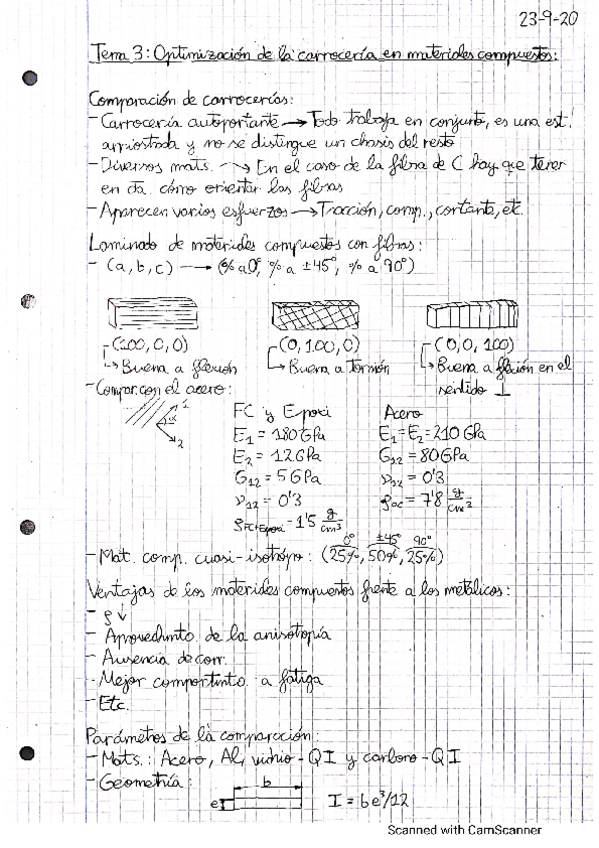 23-9-20
Tema 3: Optimización de la carrocería en materiales compuestos:
Comparación de carrocerías:
- Carrocería autoportante → Todo trabaja en conjunto, es una est.
arriostrada y no se distingue un chasis del resto
- Diversos mats. → En el caso de la fibra de C hay que tener
en cta. cómo orientar las fibras
- Aparecen varios esfuerzos → Tracción, comp., cortante, etc.
Laminado de materiales compuestos con fibras:
- (a, b, c) → (% a 0°, % a ±45°, % a 90°)
- (100, 0, 0) - (0, 100, 0) - (0, 0, 100)
↳ Buena a flexión ↳ Buena a torsión ↳ Buena a flexión en el
sentido ⊥
- Compar. con el acero:
1
2
FC y Epoxi Acero
E1 = 180 GPa E1 = E2 = 210 GPa
E2 = 12 GPa G12 = 80 GPa
G12 = 5 GPa ν12 = 0'3
ν12 = 0'3 ρac = 7'8 g/cm³
ρFC+Epoxi = 1'5 g/cm³
0° ±45° 90°
- Mat. comp. cuasi-isótropo: (25%, 50%, 25%)
Ventajas de los materiales compuestos frente a los metálicos:
- ρ ↓
- Aprovechmto. de la anisotropía
- Ausencia de corr.
- Mejor comportmto. a fatiga
- Etc.
Parámetros de la comparación:
- Mats.: Acero, Al, vidrio-QI y carbono-QI
- Geometría:
b
e
I = be³/12
Scanned with CamScanner